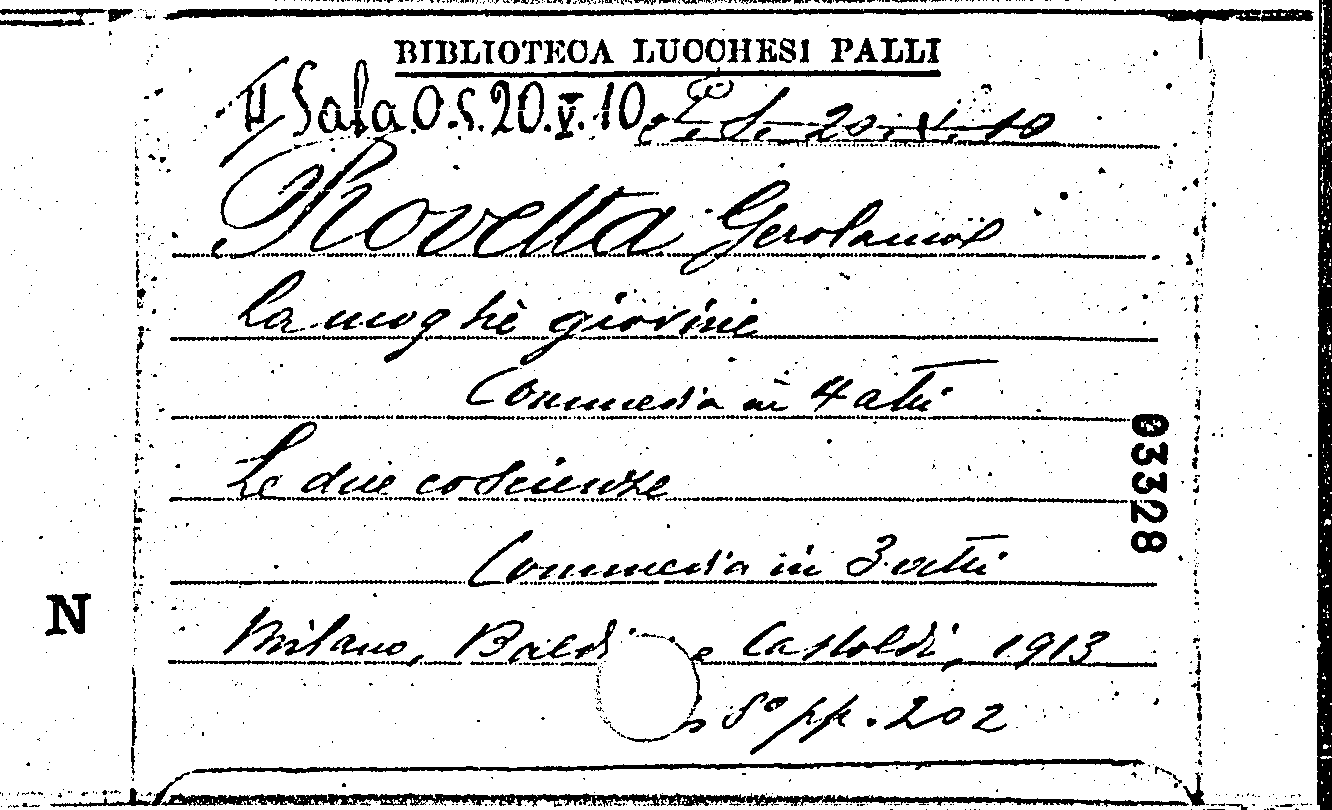 BIBLIOTECA LUCCHESI PALLI
II Sala O.S. 20.V.10 S. 20. V. 10
Rovetta Gerolamo
La moglie giovine
Commedia in 4 atti
Le due coscienze
Commedia in 3 atti
Milano, Baldi e Castoldi, 1913
8° pp. 202
0328
N